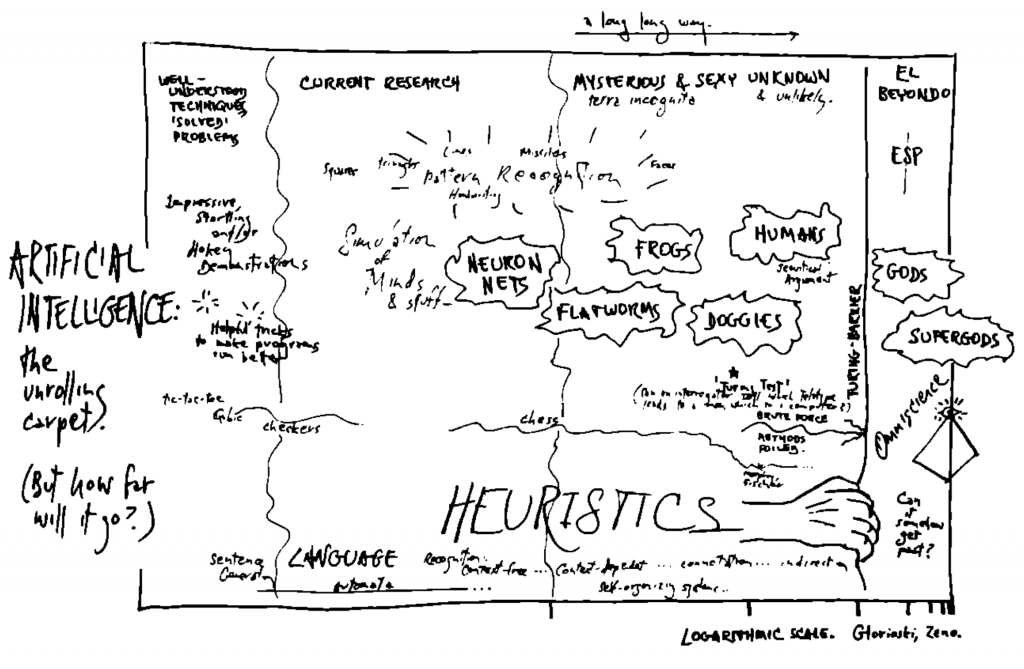 a long long way.
WELL-
UNDERSTOOD
TECHNIQUES,
'SOLVED'
PROBLEMS
CURRENT RESEARCH
MYSTERIOUS & SEXY UNKNOWN
terra incognita & unlikely.
EL
BEYONDO
ESP
Lines Missiles
Squares triangles Faces
Pattern Recognition
Handwriting
Impressive,
Startling
and/or
Hokey
Demonstrations
Simulation
of
Minds
& stuff
NEURON
NETS
FROGS
HUMANS
FLATWORMS
DOGGIES
GODS
SUPERGODS
Argument
ARTIFICIAL
INTELLIGENCE:
the
unrolling
carpet.
(But how far
will it go?)
Helpful tricks
to make programs
run better
TURING-BARRIER
'Turing Test'
(Can an interrogator tell which Teletype
leads to a man, which to a computer?)
tic-tac-toe
Qubic
checkers
chess
BRUTE FORCE
METHODS
FOILED.
Fischer
Omniscience
HEURISTICS
Can
it
somehow
get
past?
Sentence
Generator
LANGUAGE
automata ...
Recognition:
Context-free ...
Context-dependent ... connotation ... indirection
self-organizing systems...
LOGARITHMIC SCALE. Zeno.